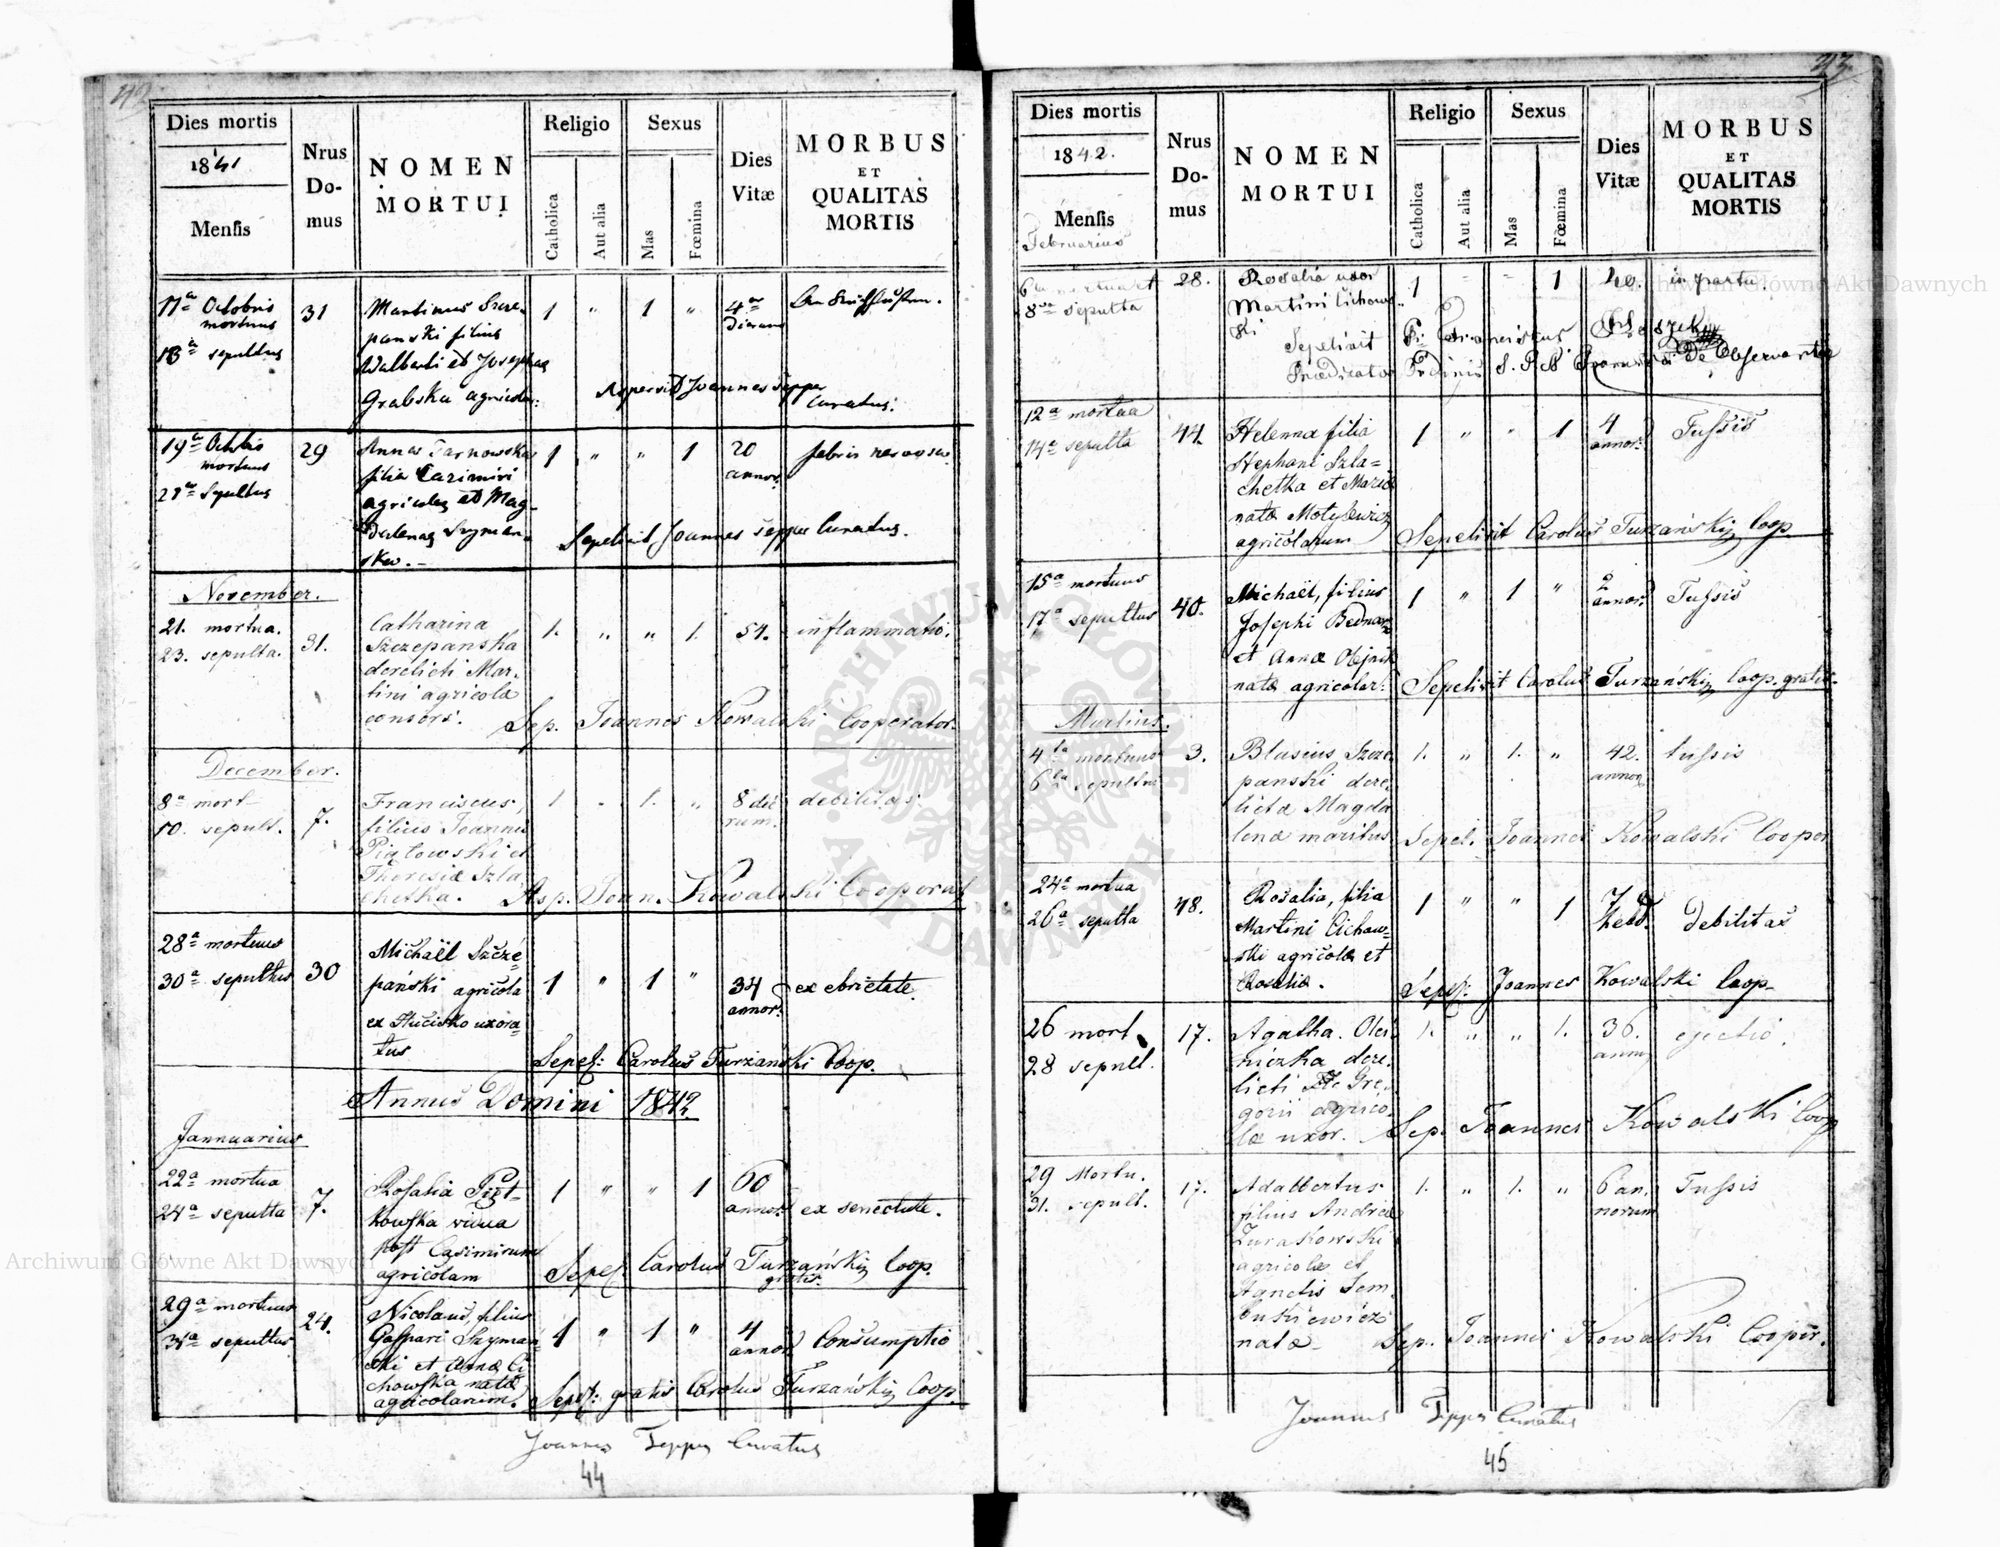 42
Dies mortis
1841
Mensis
Nrus
Do-
mus
NOMEN
MORTUI
Religio
Catholica
Aut alia
Sexus
Mas
Fœmina
Dies
Vitæ
MORBUS
ET
QUALITAS
MORTIS
17a Octobris
mortuus
18a sepultus
31
Martinus Szcze-
panski filius
Adalberti et Josephae
Grabska agricolar:
1 " 1 "
4or
dierum
Aspersit Joannes Teppa
Curatus.
19a Octobris
mortuus
21a Sepultus
29
Anna Tarnowska
filia Cazimiri
agricolae et Mag-
dalenae Szyman-
ska. -
1 " " 1
20
annor.
febris nervosa.
Sepelivit Joannes Teppa Curatus.
November.
21. mortua.
23. sepulta.
31.
Catharina
Szczepanska
derelicti Mar-
tini agricolæ
consors.
1. " " 1.
54.
inflammatio.
Sep. Joannes Kowalski Cooperator.
December.
8a mort
10. sepult.
7.
Franciscus,
filius Joannis
Piątowski et
Theresiæ Szla-
chetka.
1 " 1. "
8 die
rum.
debilitas.
Asp. Joan. Kowalski Cooperat
28a mortuus
30a sepultus
30
Michaël Szcze-
pański agricola
ex Hućisko uxora-
tus
1 " 1 "
34
annor.
ex ebrietate.
Sepel: Carolus Turzański Coop.
Annus Domini 1842
Jannuarius
22a mortua
24a sepulta
7.
Rosalia Piąt-
kowska vidua
post Casimirum
agricolam
1 " " 1
60
annor.
ex senectute.
Sepel. Carolus Turzański Coop.
gratis.
29a mortuus
31a sepultus
24.
Nicolaus, filius
Gaspari Szymań-
ski et Annæ Ci
chowska natæ
agricolarum.
1 " 1 "
4
annor.
Consumptio
Sepel: gratis Carolus Turzański Coop.
Joannes Teppa Curatus
44
43
Dies mortis
1842.
Mensis
Februarius
Nrus
Do-
mus
NOMEN
MORTUI
Religio
Catholica
Aut alia
Sexus
Mas
Fœmina
Dies
Vitæ
MORBUS
ET
QUALITAS
MORTIS
6ta mortua
8va sepulta
28.
Rosalia uxor
Martini Cichows-
ki
1 " " 1
40.
in partu.
Sepelivit Fr: Franciscus
Prædicator Ordinis S. P. N. De Observantia
12a mortua
14a sepulta
44.
Helenna filia
Stephani Szla=
chetka et Mariæ
natæ Motylewicz
agricolarum
1 " " 1
4
annor.
Tussis
Sepelivit Carolus Turzański Coop.
15a mortuus
17a sepultus
40.
Michaël, filius
Josephi Bednarz
et Annæ Olejnik
natæ agricolar:
1 " 1 "
2
annor.
Tussis
Sepelivit Carolus Turzański Coop. gratis.
Martius.
4ta mortuus
6ta sepultus
3.
Blasius Szcze
panski dere-
lictæ Magda
lenæ maritus
1. " 1. "
42.
annor
tussis
Sepel. Joannes Kowalski Cooper
24a mortua
26a sepulta
48.
Rosalia, filia
Martini Cichow-
ski agricolæ et
Rosaliæ.
1 " " 1
7
hebd.
Debilitas
Sepel: Joannes Kowalski Coop-
26 mort
28 sepult.
17.
Agatha. Oleś
niczka dere-
licti Gre-
gorii agrico
læ uxor.
1. " " 1.
36.
ejectio.
Sep. Joannes Kowalski Coop
29 Mortu.
31. sepult.
17.
Adalbertus
filius Andreæ
Zurakowski
agricolæ et
Agnetis Sem
natæ
1. " 1. "
6 an.
norum
Tussis
Sep. Joannes Kowalski Cooper.
Joannes Teppa Curatus
45
Archiwum Główne Akt Dawnych
Archiwum Główne Akt Dawnych
ARCHIWUM GŁÓWNE AKT DAWNYCH